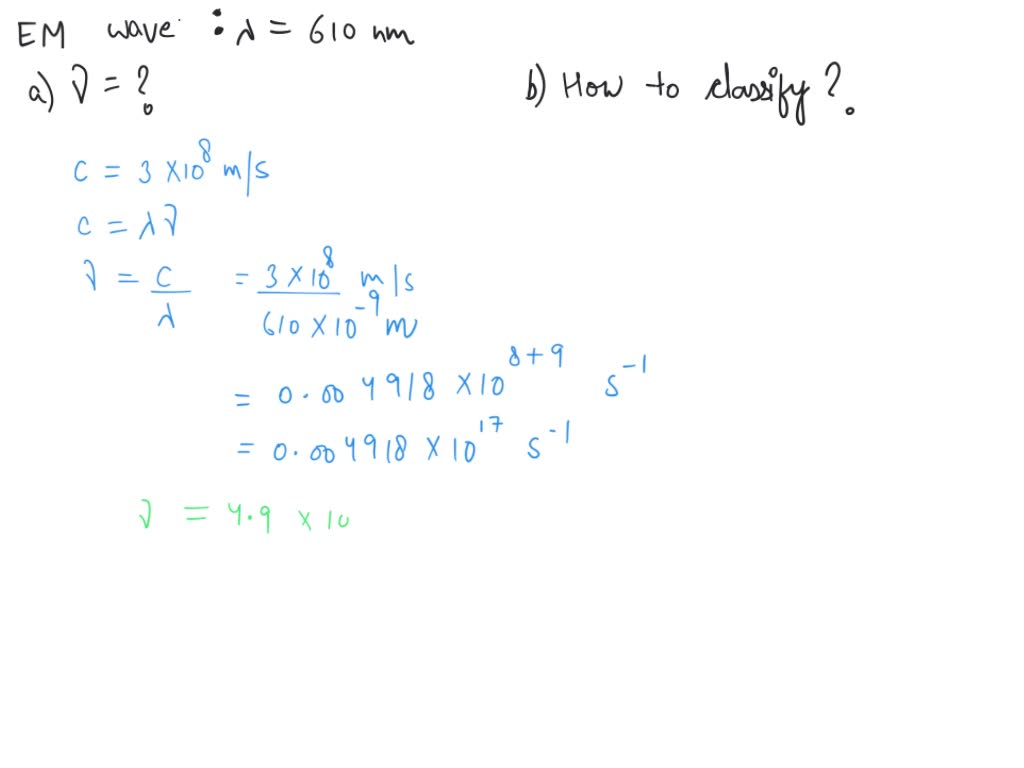 EM wave : λ = 610 nm
a) ν = ?
b) How to classify ?
c = 3 × 10⁸ m/s
c = λ ν
ν = c/λ = 3 × 10⁸ m/s / 610 × 10⁻⁹ m
= 0.004918 × 10⁸⁺⁹ s⁻¹
= 0.004918 × 10¹⁷ s⁻¹
ν = 4.9 × 10